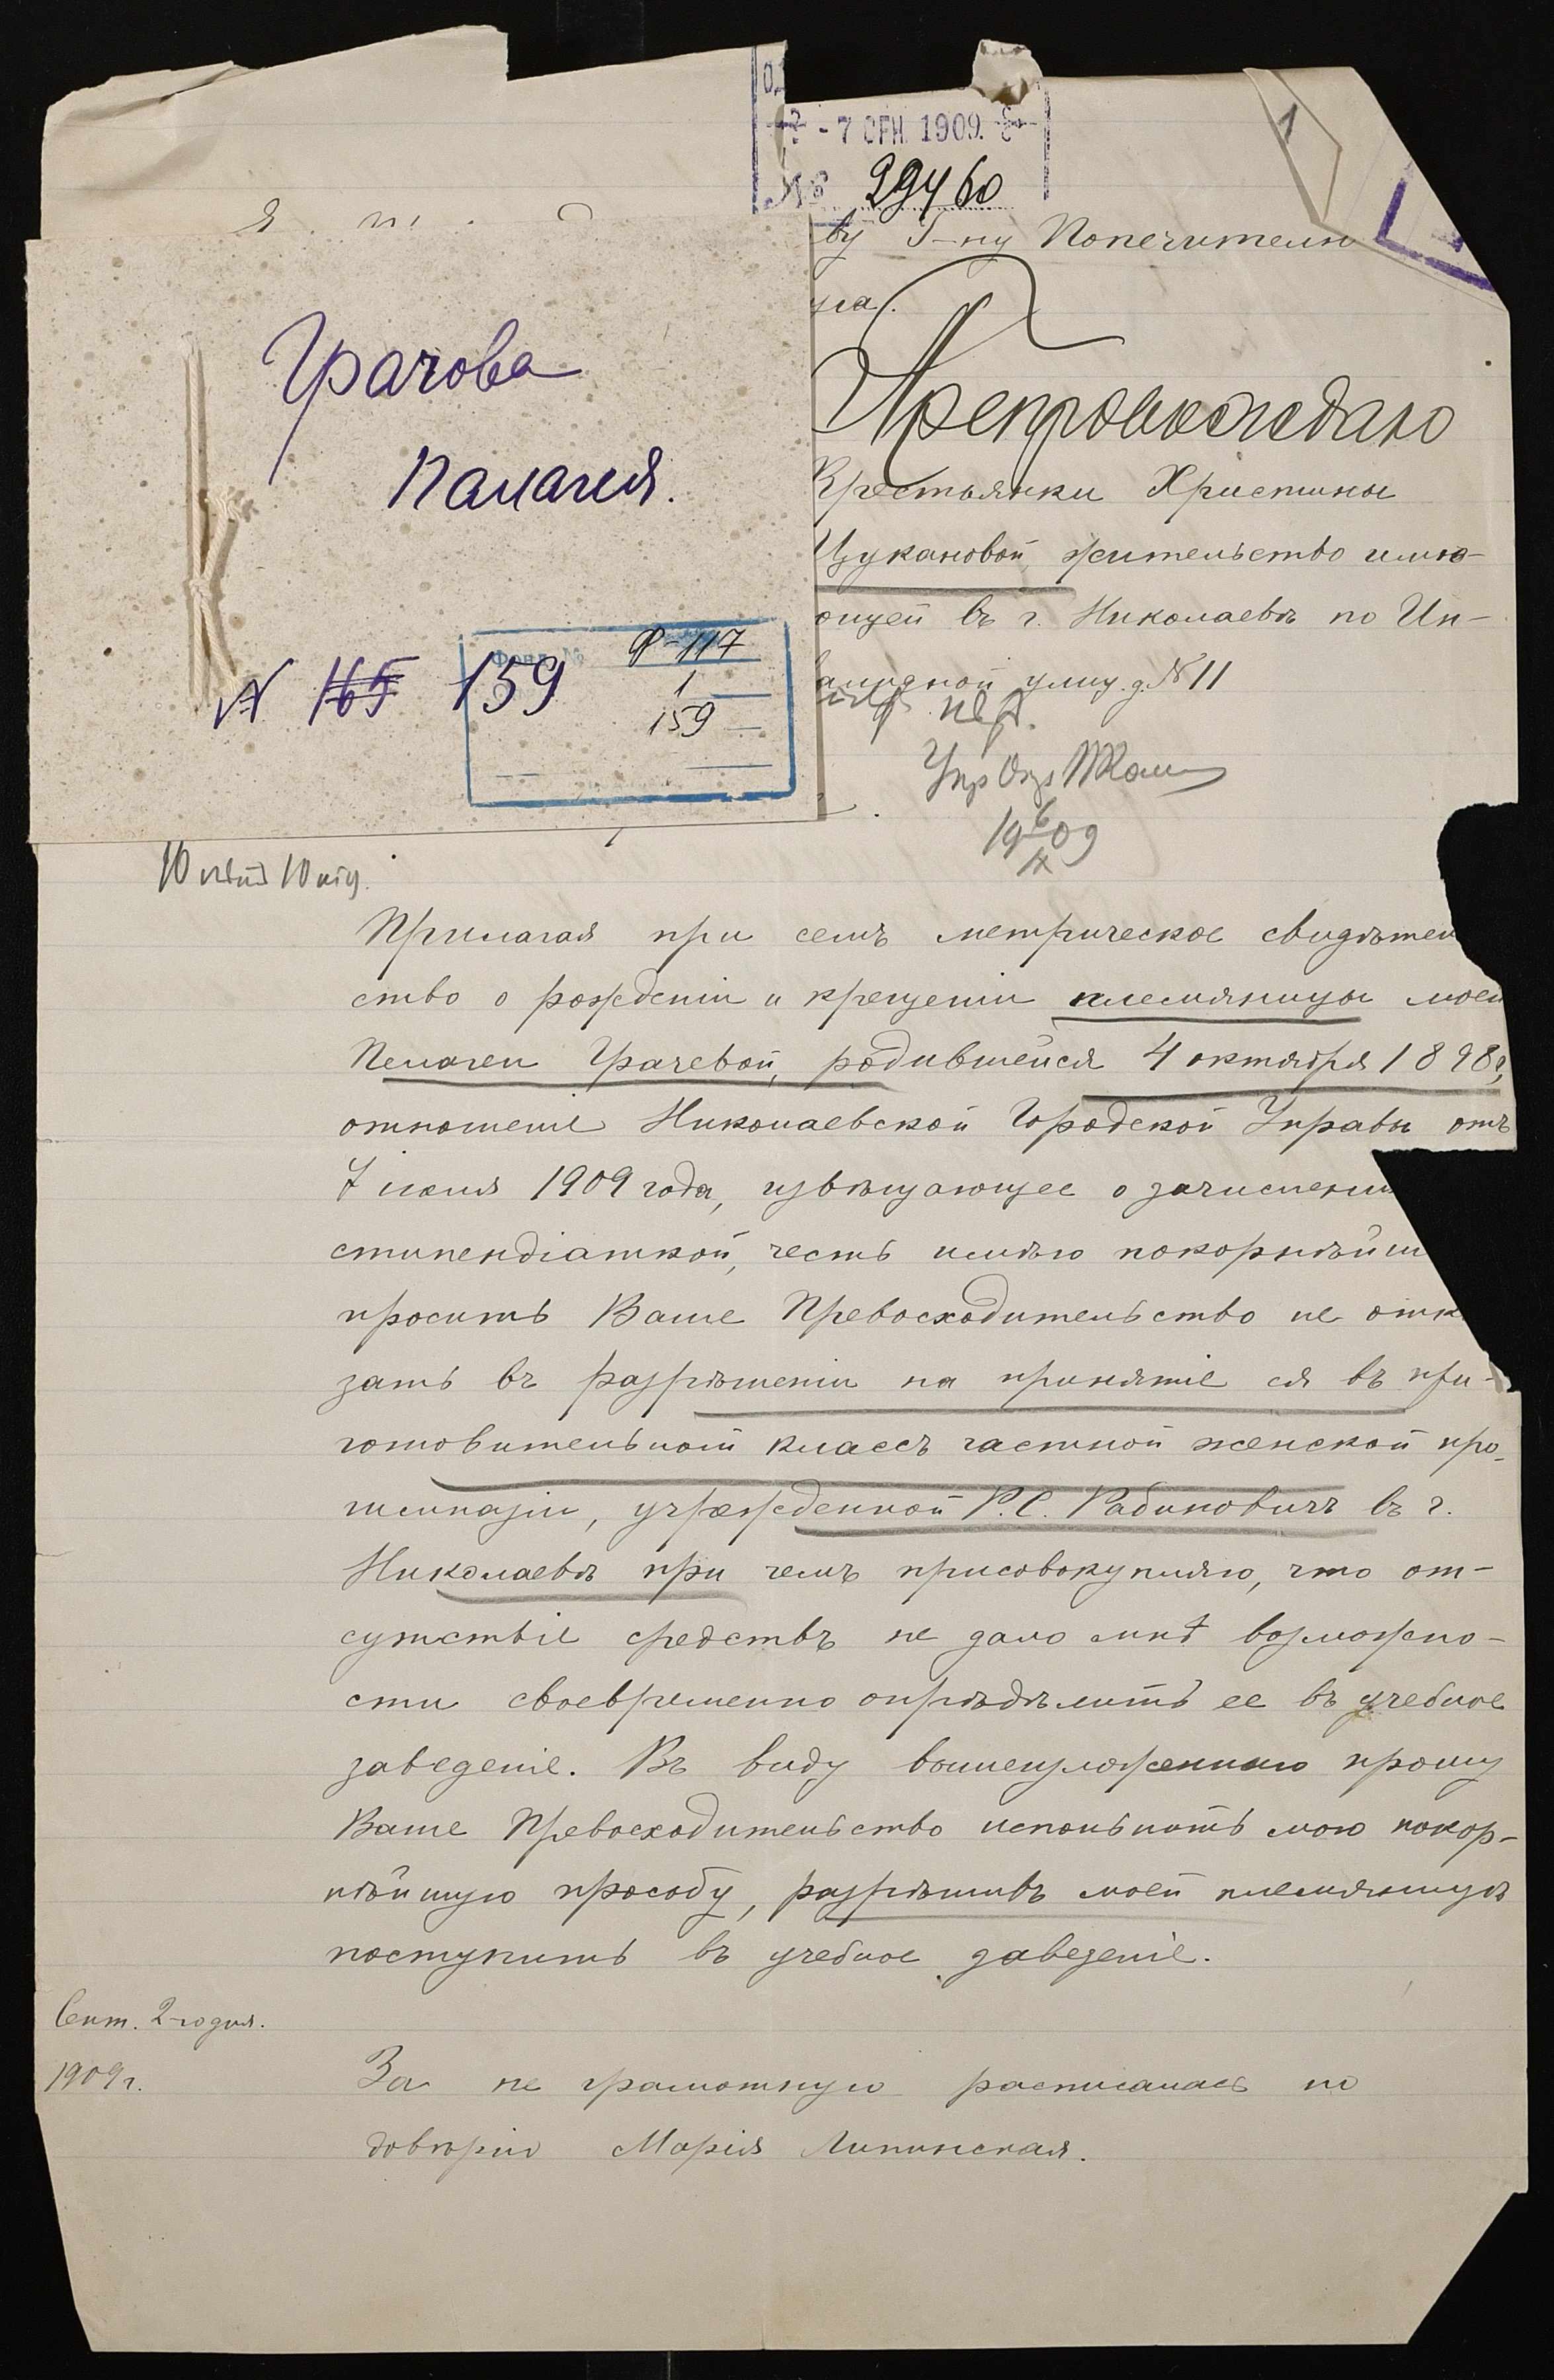 - 7 СЕН. 1909.
№ 29460
1
ву Г-ну Попечителю
уга.
Препровождаю
Крестьянки Христины
Цукановой, жительство имѣ-
ющей въ г. Николаевѣ по Ин-
валидной улиц. д. № 11
1909
Грачова
Палагея.
№ 165 159
Фонд №
Ф-117
1
159
10 лѣтъ 10 мѣс.
Прилагая при семъ метрическое свидѣтель
ство о рожденіи и крещеніи племянницы моей
Пелагеи Грачевой, родившейся 4 октября 1898 г,
отношеніе Николаевской Городской Управы отъ
7 іюля 1909 года, извѣщающее о зачислении
стипендіаткой, честь имѣю покорнѣйш
просить Ваше Превосходительство не отка
зать въ разрѣшеніи на принятіе ея въ при-
готовительный классъ частной женской про-
гимназіи, учрежденной Р. С. Рабиновичъ въ г.
Николаевѣ при чемъ присовокупляю, что от-
сутствіе средствъ не дало мнѣ возможно-
сти своевременно опрѣдѣлить ее въ учебное
заведеніе. Въ виду вышеизложеннаго прошу
Ваше Превосходительство испольнить мою покор-
нѣйшую прособу, разрѣшивъ моей племянницѣ
поступить въ учебное заведеніе.
Сент. 2-го дня.
1909 г.
За не грамотную расписалась по
довѣрію Марія Липинская.